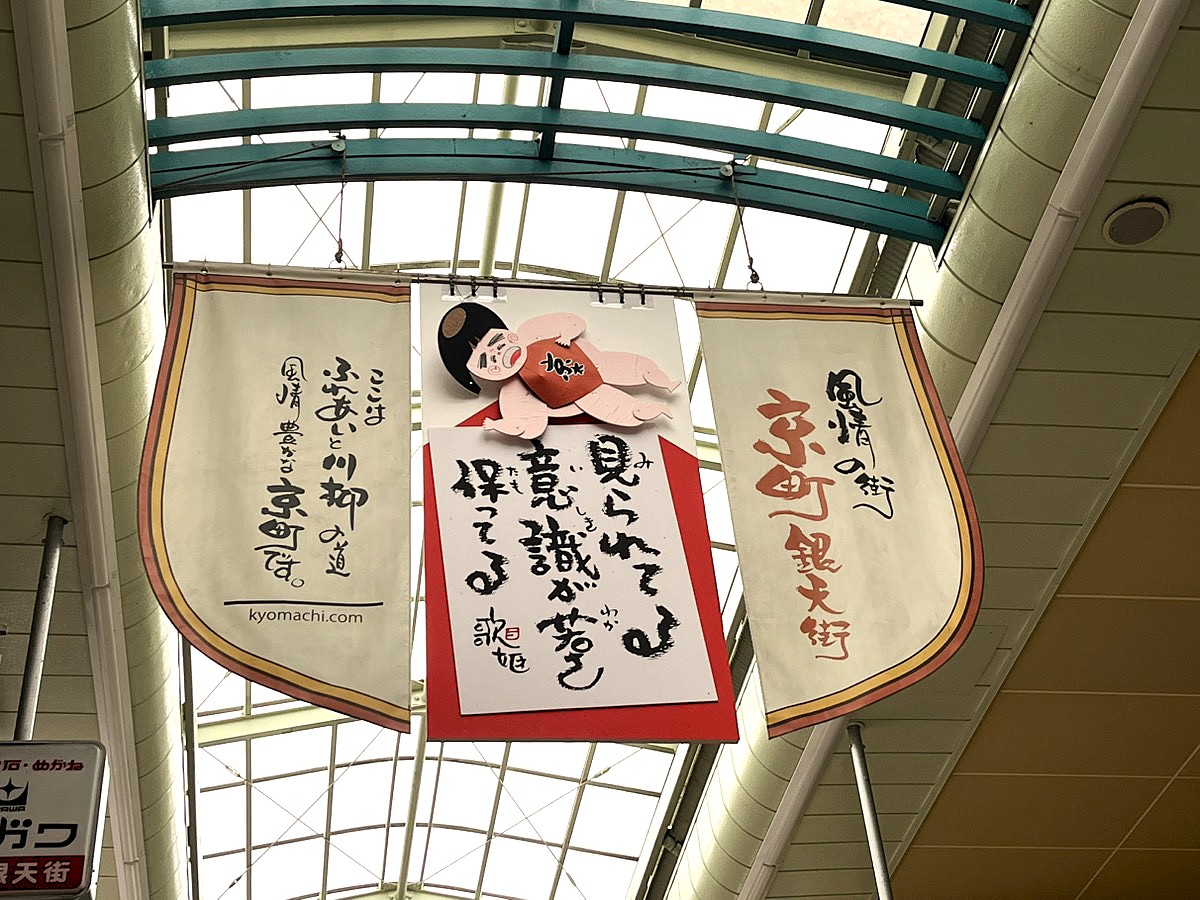 風情の街
京町銀天街
見られてる
み
意識が若さ
いしき
わか
保ってる
たも
歌姫
ここは
ふれあいと川柳の道
風情 豊かな京町です。
kyomachi.com
石・めがね
ガワ
銀天街